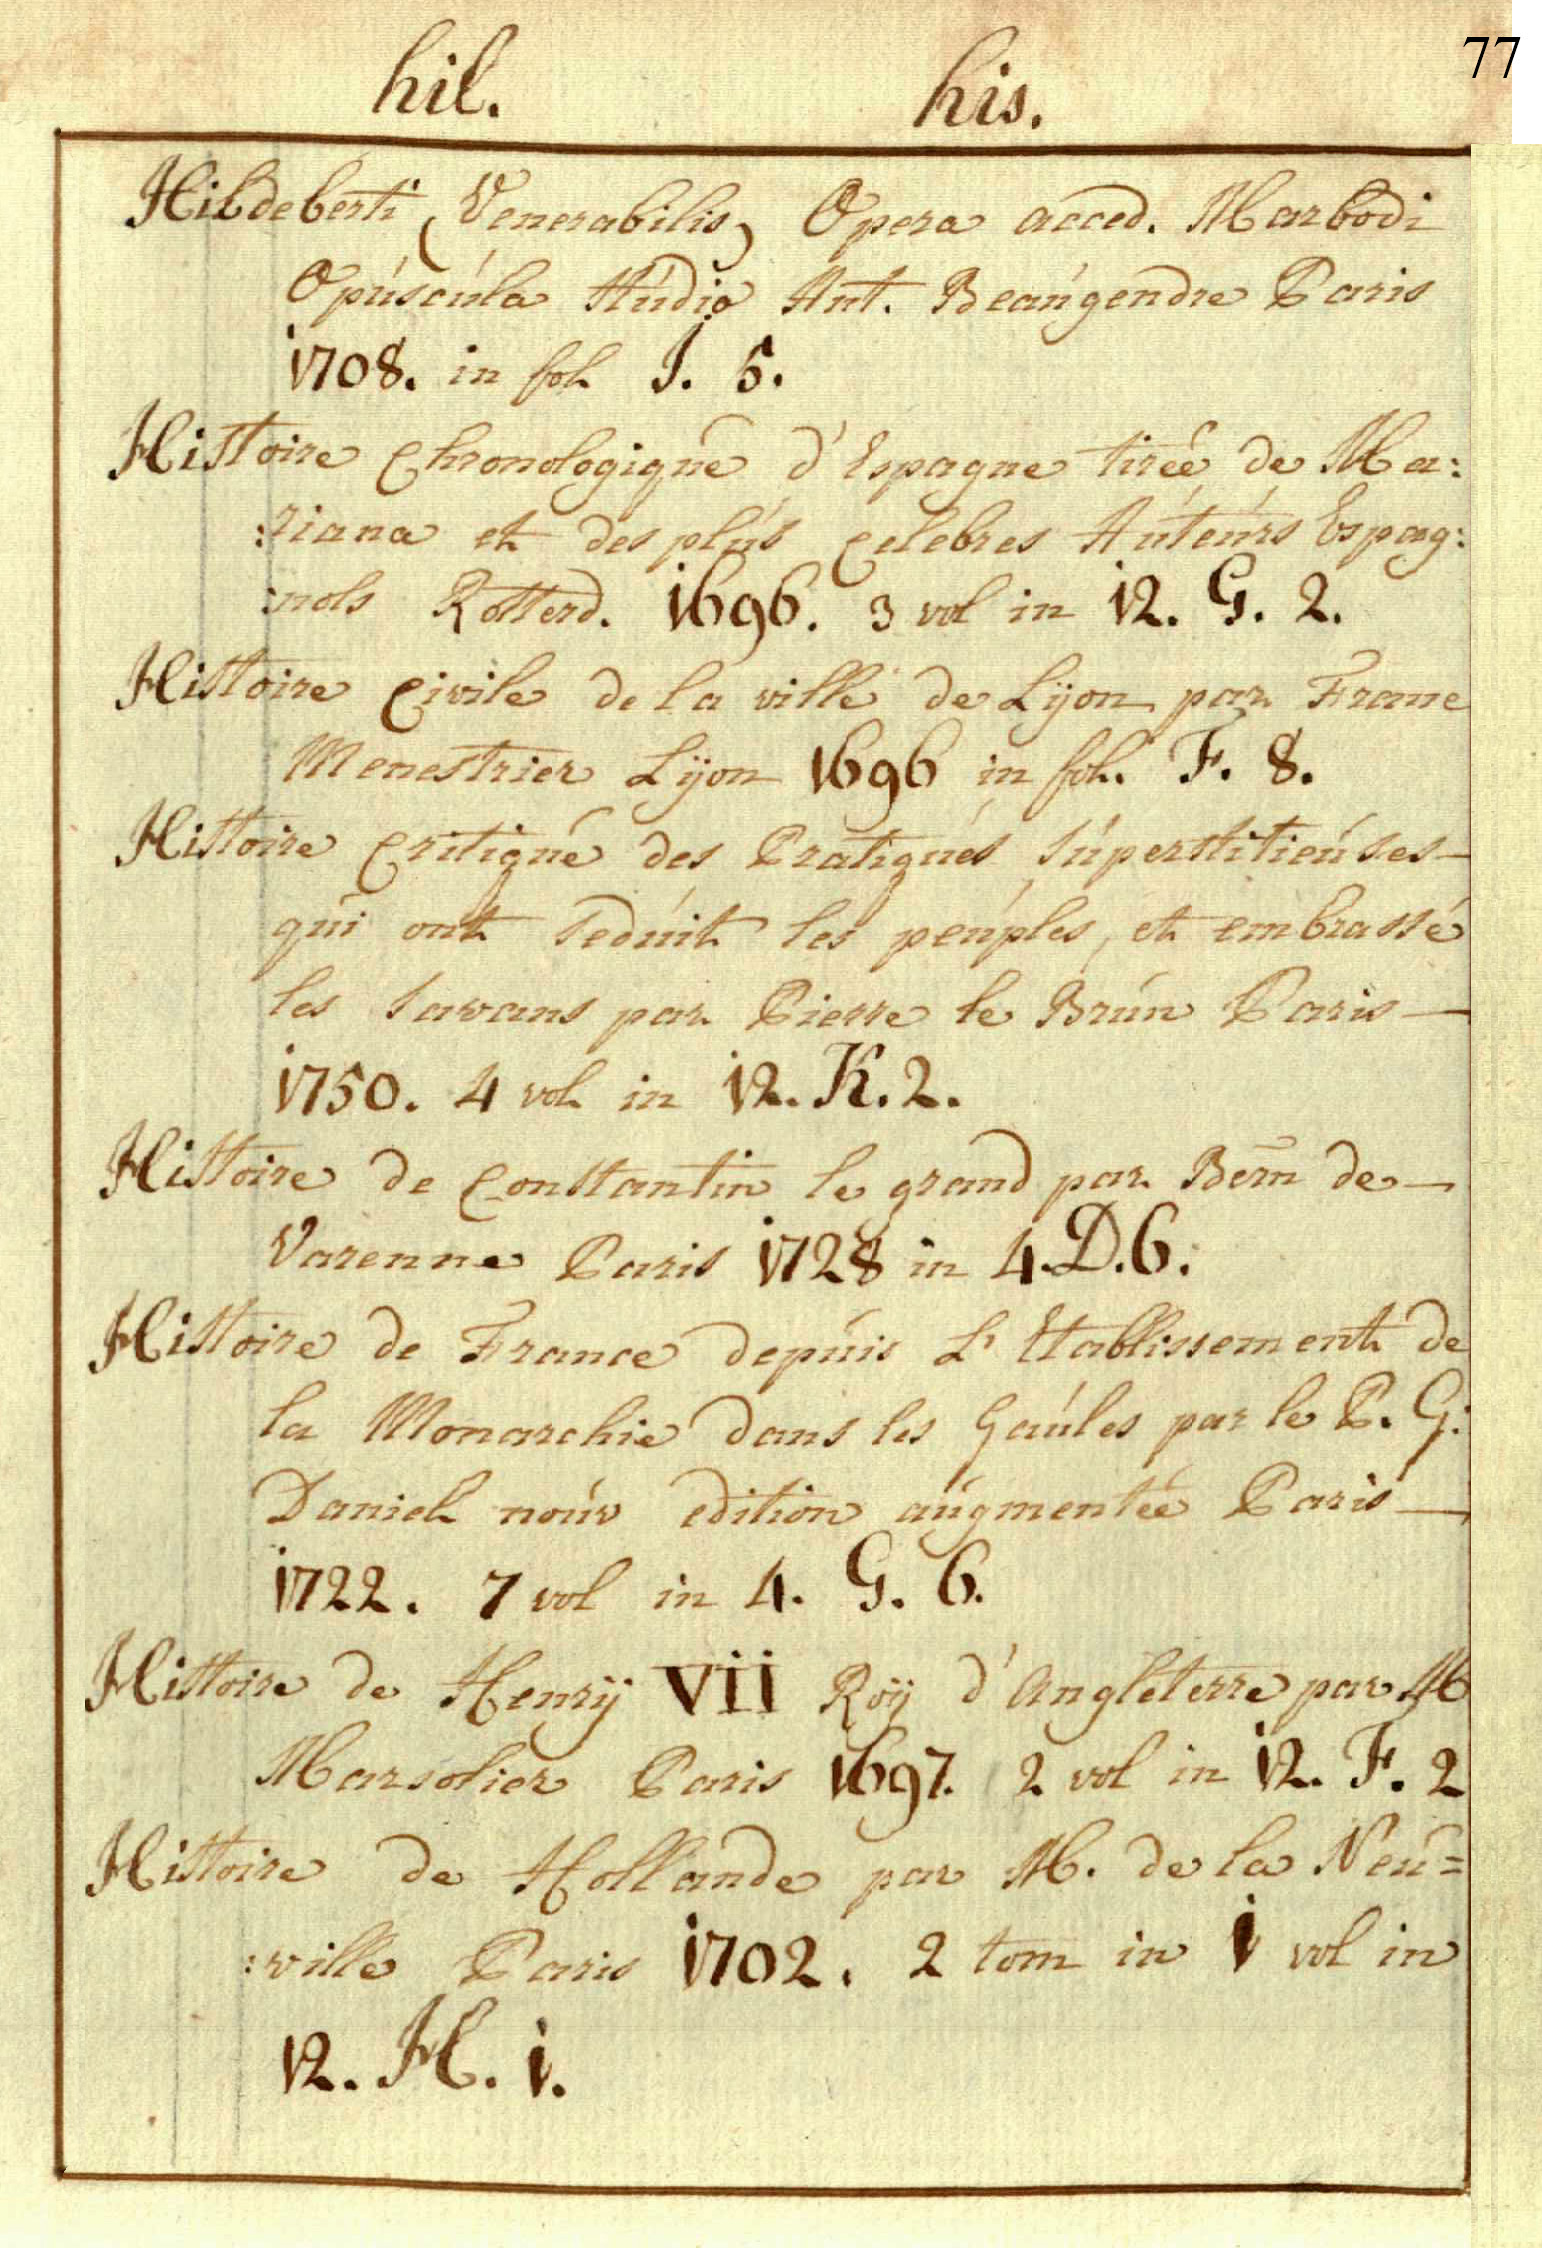 77
hil. his.
Hildeberti (Venerabilis) Opera acced. Marbodi
Opúscúla stúdio Ant. Beaúgendre Paris
1708. in fol. I. 5.
Histoire Chronologiqúe d'Espagne tirée de Ma:
:riana et des plús celebres Aúteúrs Espag:
:nols Rotterd. 1696. 3 vol in 12. G. 2.
Histoire Civile de la ville de Lÿon par Franc
Menestrier Lÿon 1696 in fol. F. 8.
Histoire Critiqúe des Pratiqúes súperstitieúses—
qúi ont sedúit les peúples, et embrassé
les savans par Pierre le Brún Paris—
1750. 4 vol. in 12. K. 2.
Histoire de Constantin le grand par Bern de—
Varenne Paris 1728 in 4. D. 6.
Histoire de France depúis L'Etablissement de
la Monarchie dans les Gaúles par le P. G:
Daniel noúv edition aúgmentée Paris—
1722. 7 vol in 4. G. 6.
Histoire de Henrÿ VII Roÿ d'Angleterre par M
Marsolier Paris 1697. 2 vol in 12. F. 2
Histoire de Hollande par M. de la Neú=
:ville Paris 1702. 2 tom in 1 vol in
12. H. 1.